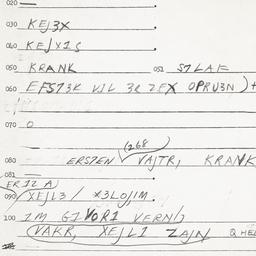 020 —
030 KEJ3X
040 KEJX1S
050 KRANK 051 S7LAF
060 EFS73K VJL 3R 7EX OPRU3N)+
070 O
(268
ERS7EN VAJTR, KRANK
080
081 —
ER12 A)
090 XEJL3 / X3LOJ1M.
100 1M G1VOR1 VERN/)
VAKR, XEJL1 ZAJN QHEL